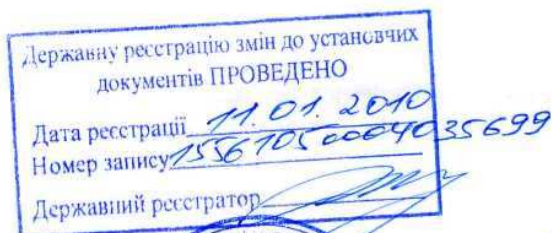 Державну реєстрацію змін до установчих
документів ПРОВЕДЕНО
Дата реєстрації 11.01.2010
Номер запису 15561050004035699
Державний реєстратор